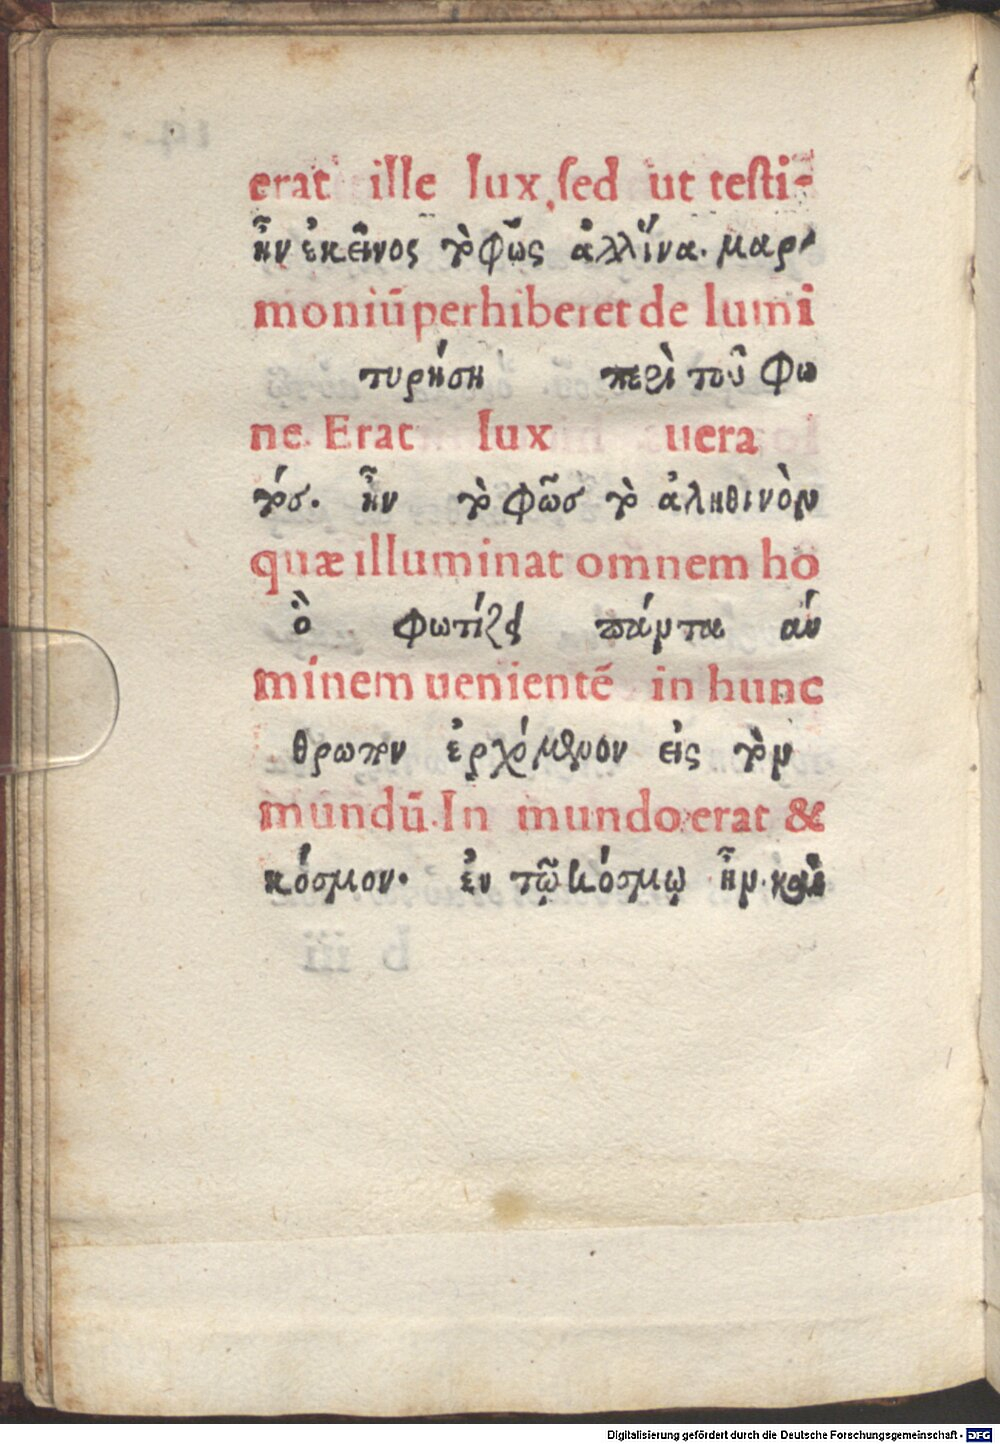 erat ille lux, sed ut testi-
ἦν ἐκεῖνος τὸ φῶς ἀλλ' ἵνα. μαρ-
moniū perhiberet de lumi
τυρήση περὶ τοῦ φω
ne. Erat lux uera
τός. ἦν τὸ φῶσ τὸ ἀληθινὸν
quæ illuminat omnem ho
ὃ φωτίζει πάντα ἄν
minem uenientē in hunc
θρωπον ἐρχόμενον εἰς τὸν
mundū. In mundo erat &
κόσμον. ἐν τῷ κόσμῳ ἦν. καὶ
b iii
Digitalisierung gefördert durch die Deutsche Forschungsgemeinschaft - DFG